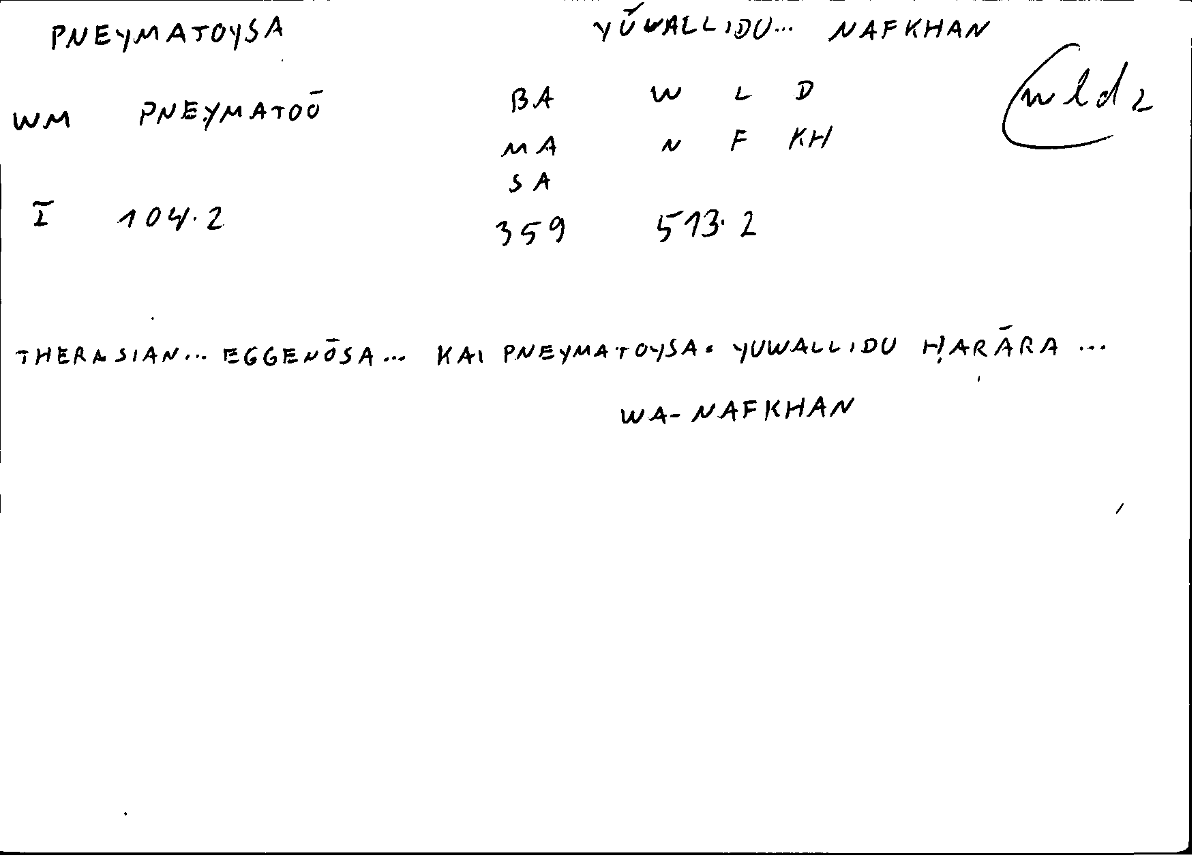 PNEYMATOYSA YŬWALLIDU... NAFKHAN
WM PNEYMATOŌ BA W L D wld2
MA N F KH
SA
Ī 104.2 359 513.2
THERASIAN... EGGENŌSA... KAI PNEYMATOYSA. YUWALLIDU ḤARĀRA ...
WA-NAFKHAN